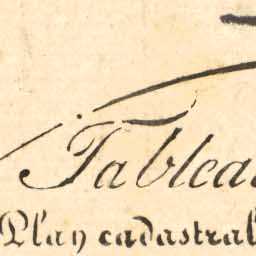 Tablea
Plan cadastral